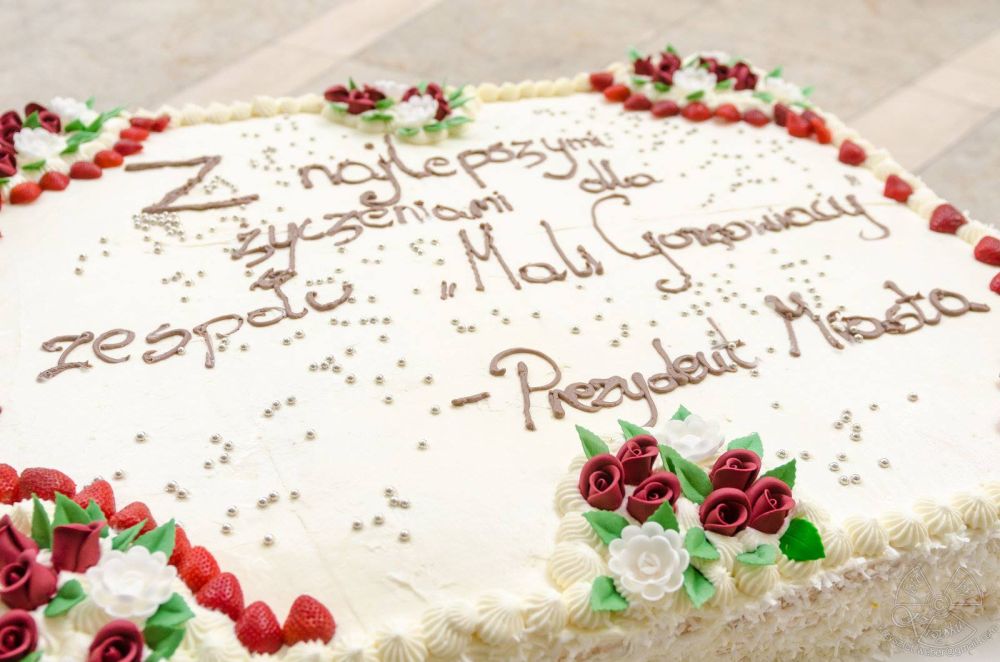 Z najlepszymi
życzeniami dla
zespołu „Mali Gorzowiacy”
- Prezydent Miasta